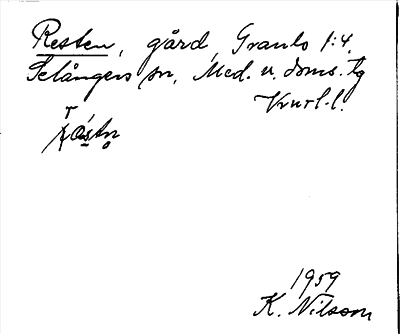 Resten, gård, Granlo 1:4.
Selångers sn, Med. v. doms. tg
Vnrl. l.
1959
K. Nilsson